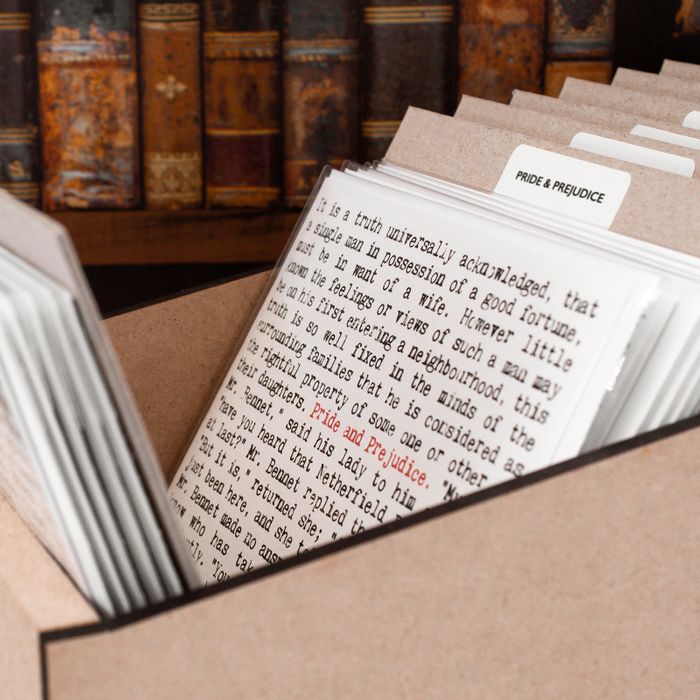 PRIDE & PREJUDICE
It is a truth universally acknowledged, that
a single man in possession of a good fortune,
must be in want of a wife. However little
known the feelings or views of such a man may
be on his first entering a neighbourhood, this
truth is so well fixed in the minds of the
surrounding families that he is considered as
the rightful property of some one or other
their daughters. Pride and Prejudice.
Mr. Bennet," said his lady to him
have you heard that Netherfield
at last?" Mr. Bennet replied
"But it is," returned she;
just been here, and she
Mr. Bennet made no
know who has
"You